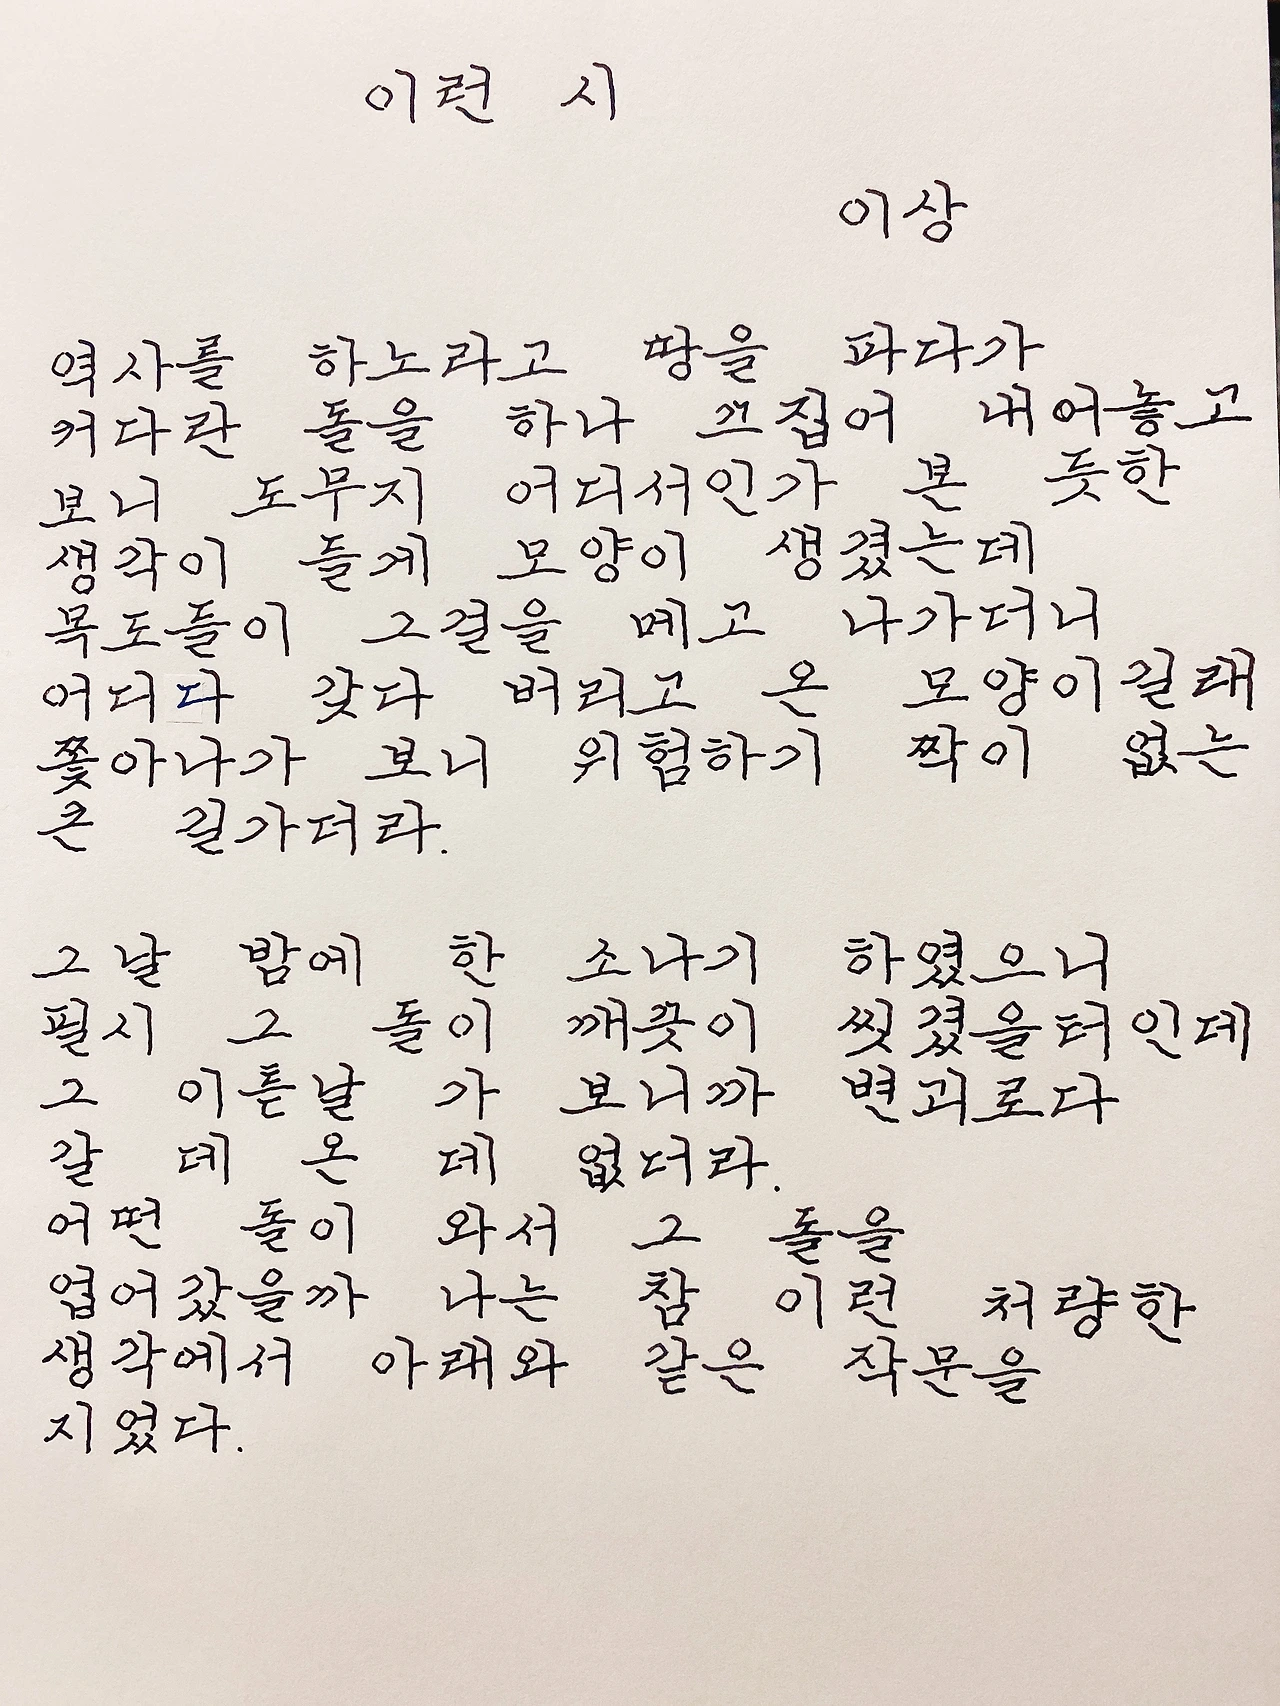 이런 시
이상
역사를 하노라고 땅을 파다가
커다란 돌을 하나 끄집어 내어놓고
보니 도무지 어디서인가 본 듯한
생각이 들게 모양이 생겼는데
목도들이 그걸을 메고 나가더니
어디다 갖다 버리고 온 모양이길래
쫓아나가 보니 위험하기 짝이 없는
큰 길가더라.
그날 밤에 한 소나기 하였으니
필시 그 돌이 깨끗이 씻겼을터인데
그 이튿날 가 보니까 변괴로다
갈 데 온 데 없더라.
어떤 돌이 와서 그 돌을
업어갔을까 나는 참 이런 처량한
생각에서 아래와 같은 작문을
지었다.